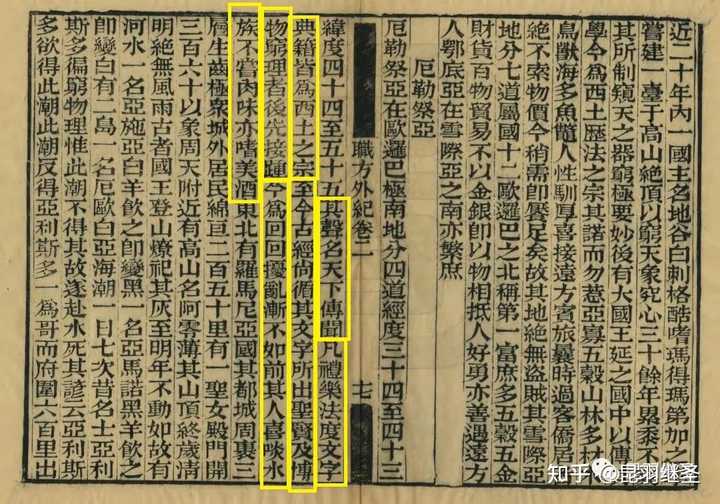 近二十年內一國主名地谷白剌格酷嗜瑪得瑪第加之
嘗建一臺于高山絕頂以窮天象究心三十餘年累黍不
其所制窺天之器窮極要妙後有大國王延之國中以傳
學今為西土歷法之宗其諾而勿惹亞寡五穀山林多材
鳥獸海多魚髗人性馴厚喜接遠方賓旅曩時過客僑居
絕不索物價今稍需即饜足矣故其地絕無盜賊其雪際亞
地分七道屬國十二歐邏巴之北稱第一富庶多五穀五金
財貨百物貿易不以金銀即以物相抵人好勇亦善遇遠方
人鄂底亞在雪際亞之南亦繁庶
厄勒祭亞
厄勒祭亞在歐邏巴極南地分四道經度三十四至四十三
職方外紀卷二 七
緯度四十四至五十五其聲名天下傳聞凡禮樂法度文字
典籍皆為西土之宗至今古經尚循其文字所出聖賢及博
物窮理者後先接踵今為回回擾亂漸不如前其人喜啖水
族不嘗肉味亦嗜美酒東北有羅馬尼亞國其都城周裏三
層生齒極衆城外居民綿亘二百五十里有一聖女殿門開
三百六十以象周天附近有高山名阿零薄其山頂終歲清
明絕無風雨古者國王登山燎祀其灰至明年不動如故有
河水一名亞施亞白羊飲之即變黑一名亞馬諾黑羊飲之
即變白有二島一名厄歐白亞海潮一日七次昔名士亞利
斯多徧窮物理惟此潮不得其故遂赴水死其諺云亞利斯
多欲得此潮此潮反得亞利斯多一為哥而府圍六百里出
知乎 @昆羽继圣